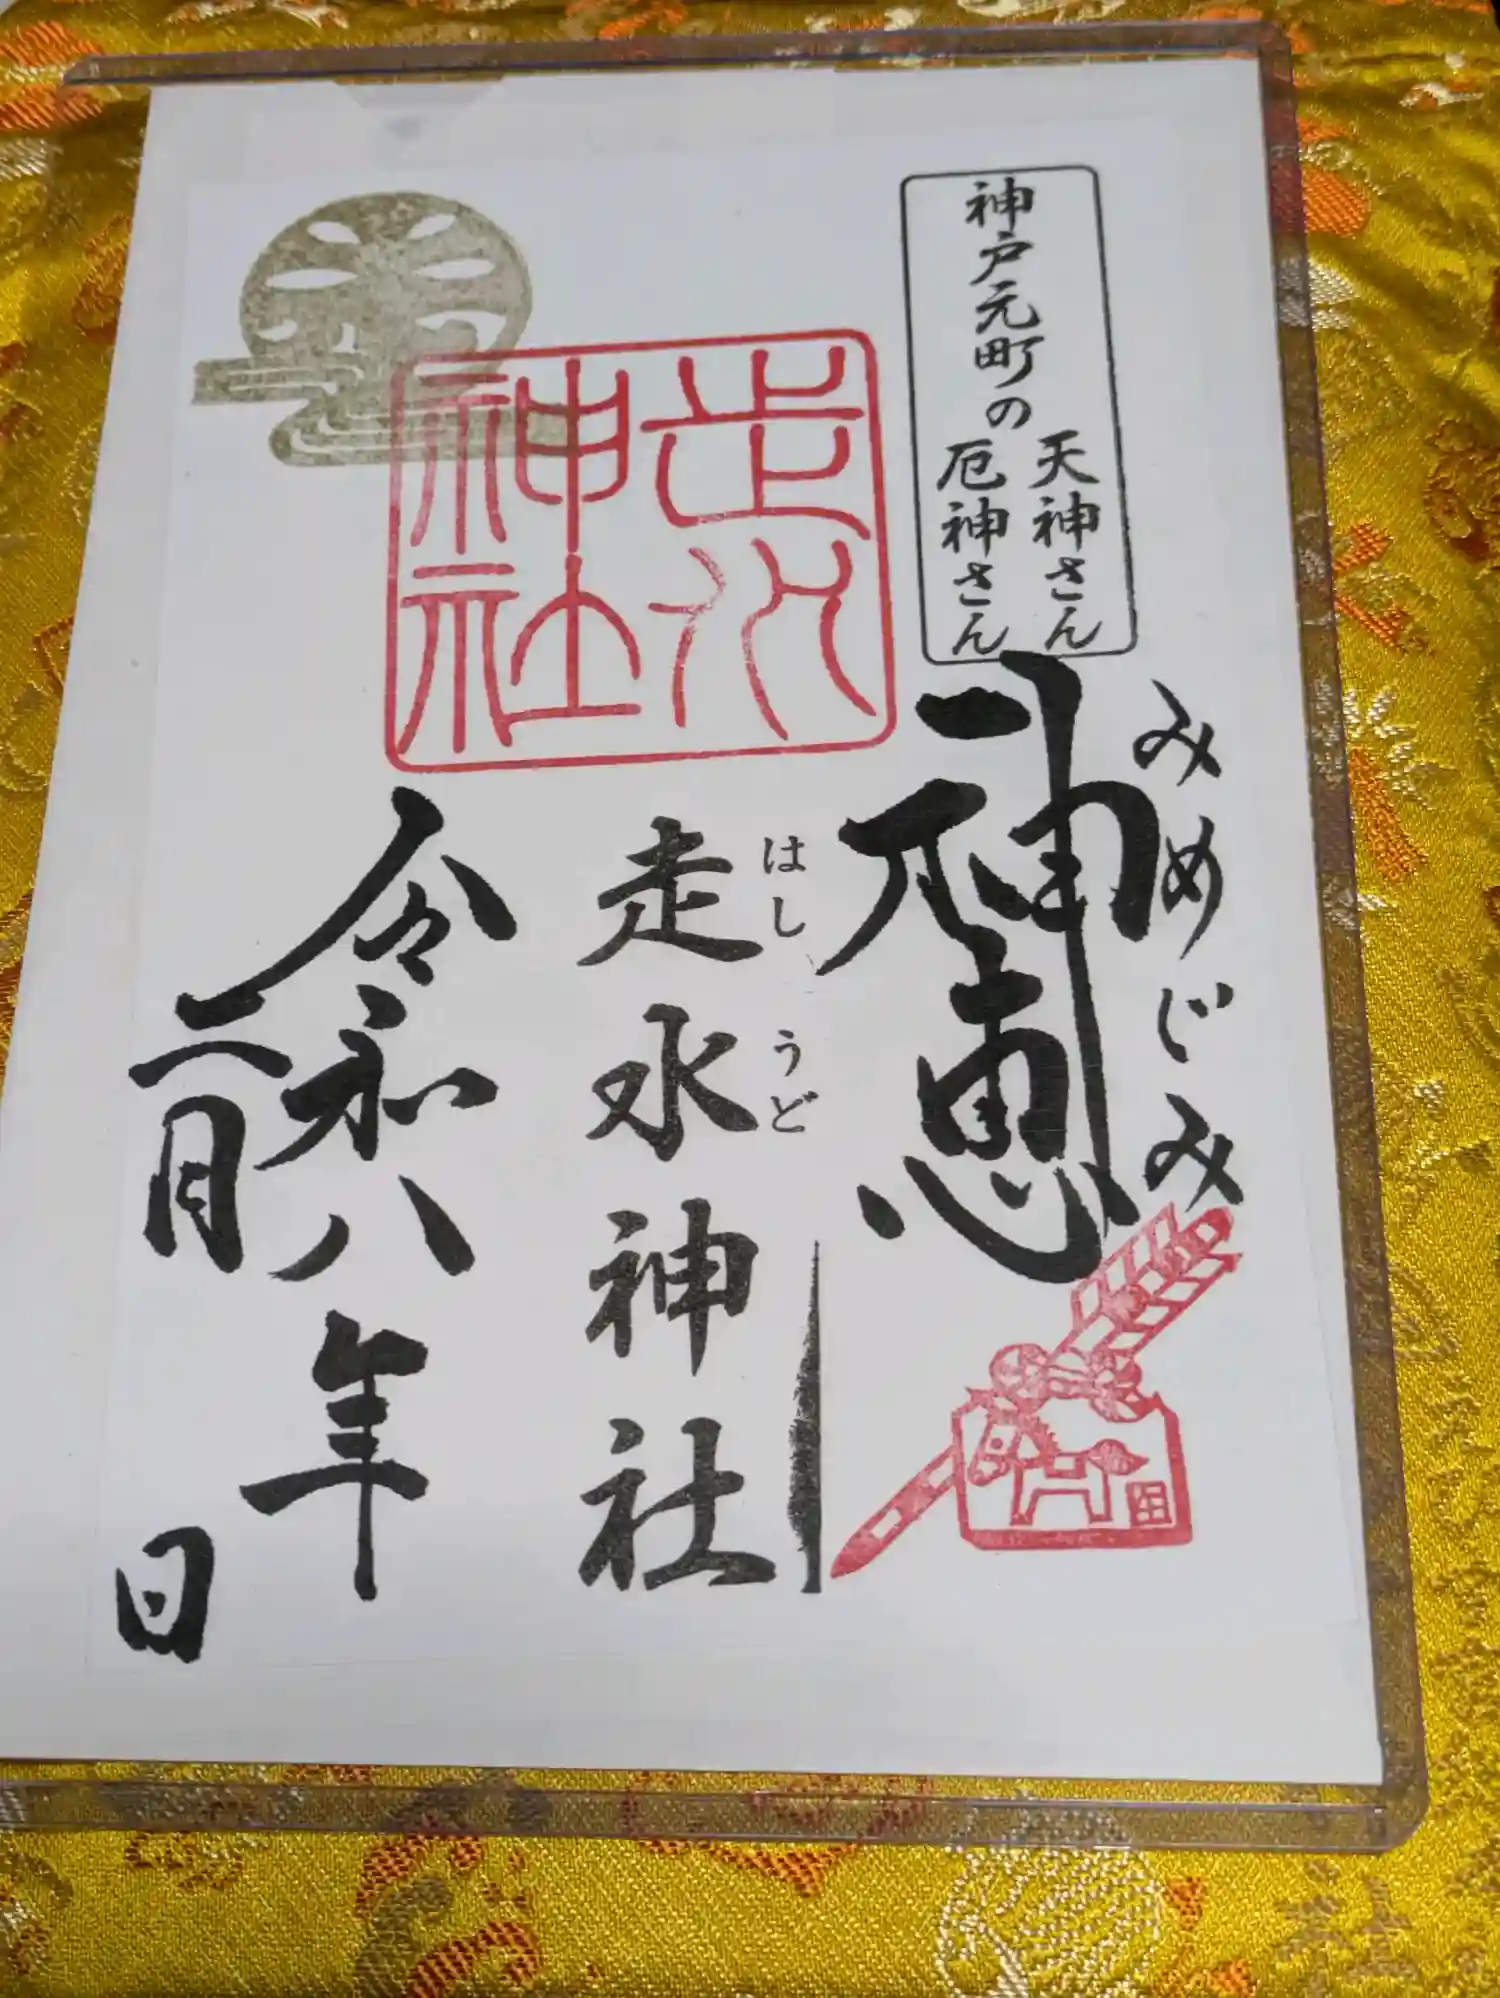 神戸元町の
天神さん
厄神さん
みめぐみ
神恵
はしうど
走水神社
走水
神社
令和八年
二月
日